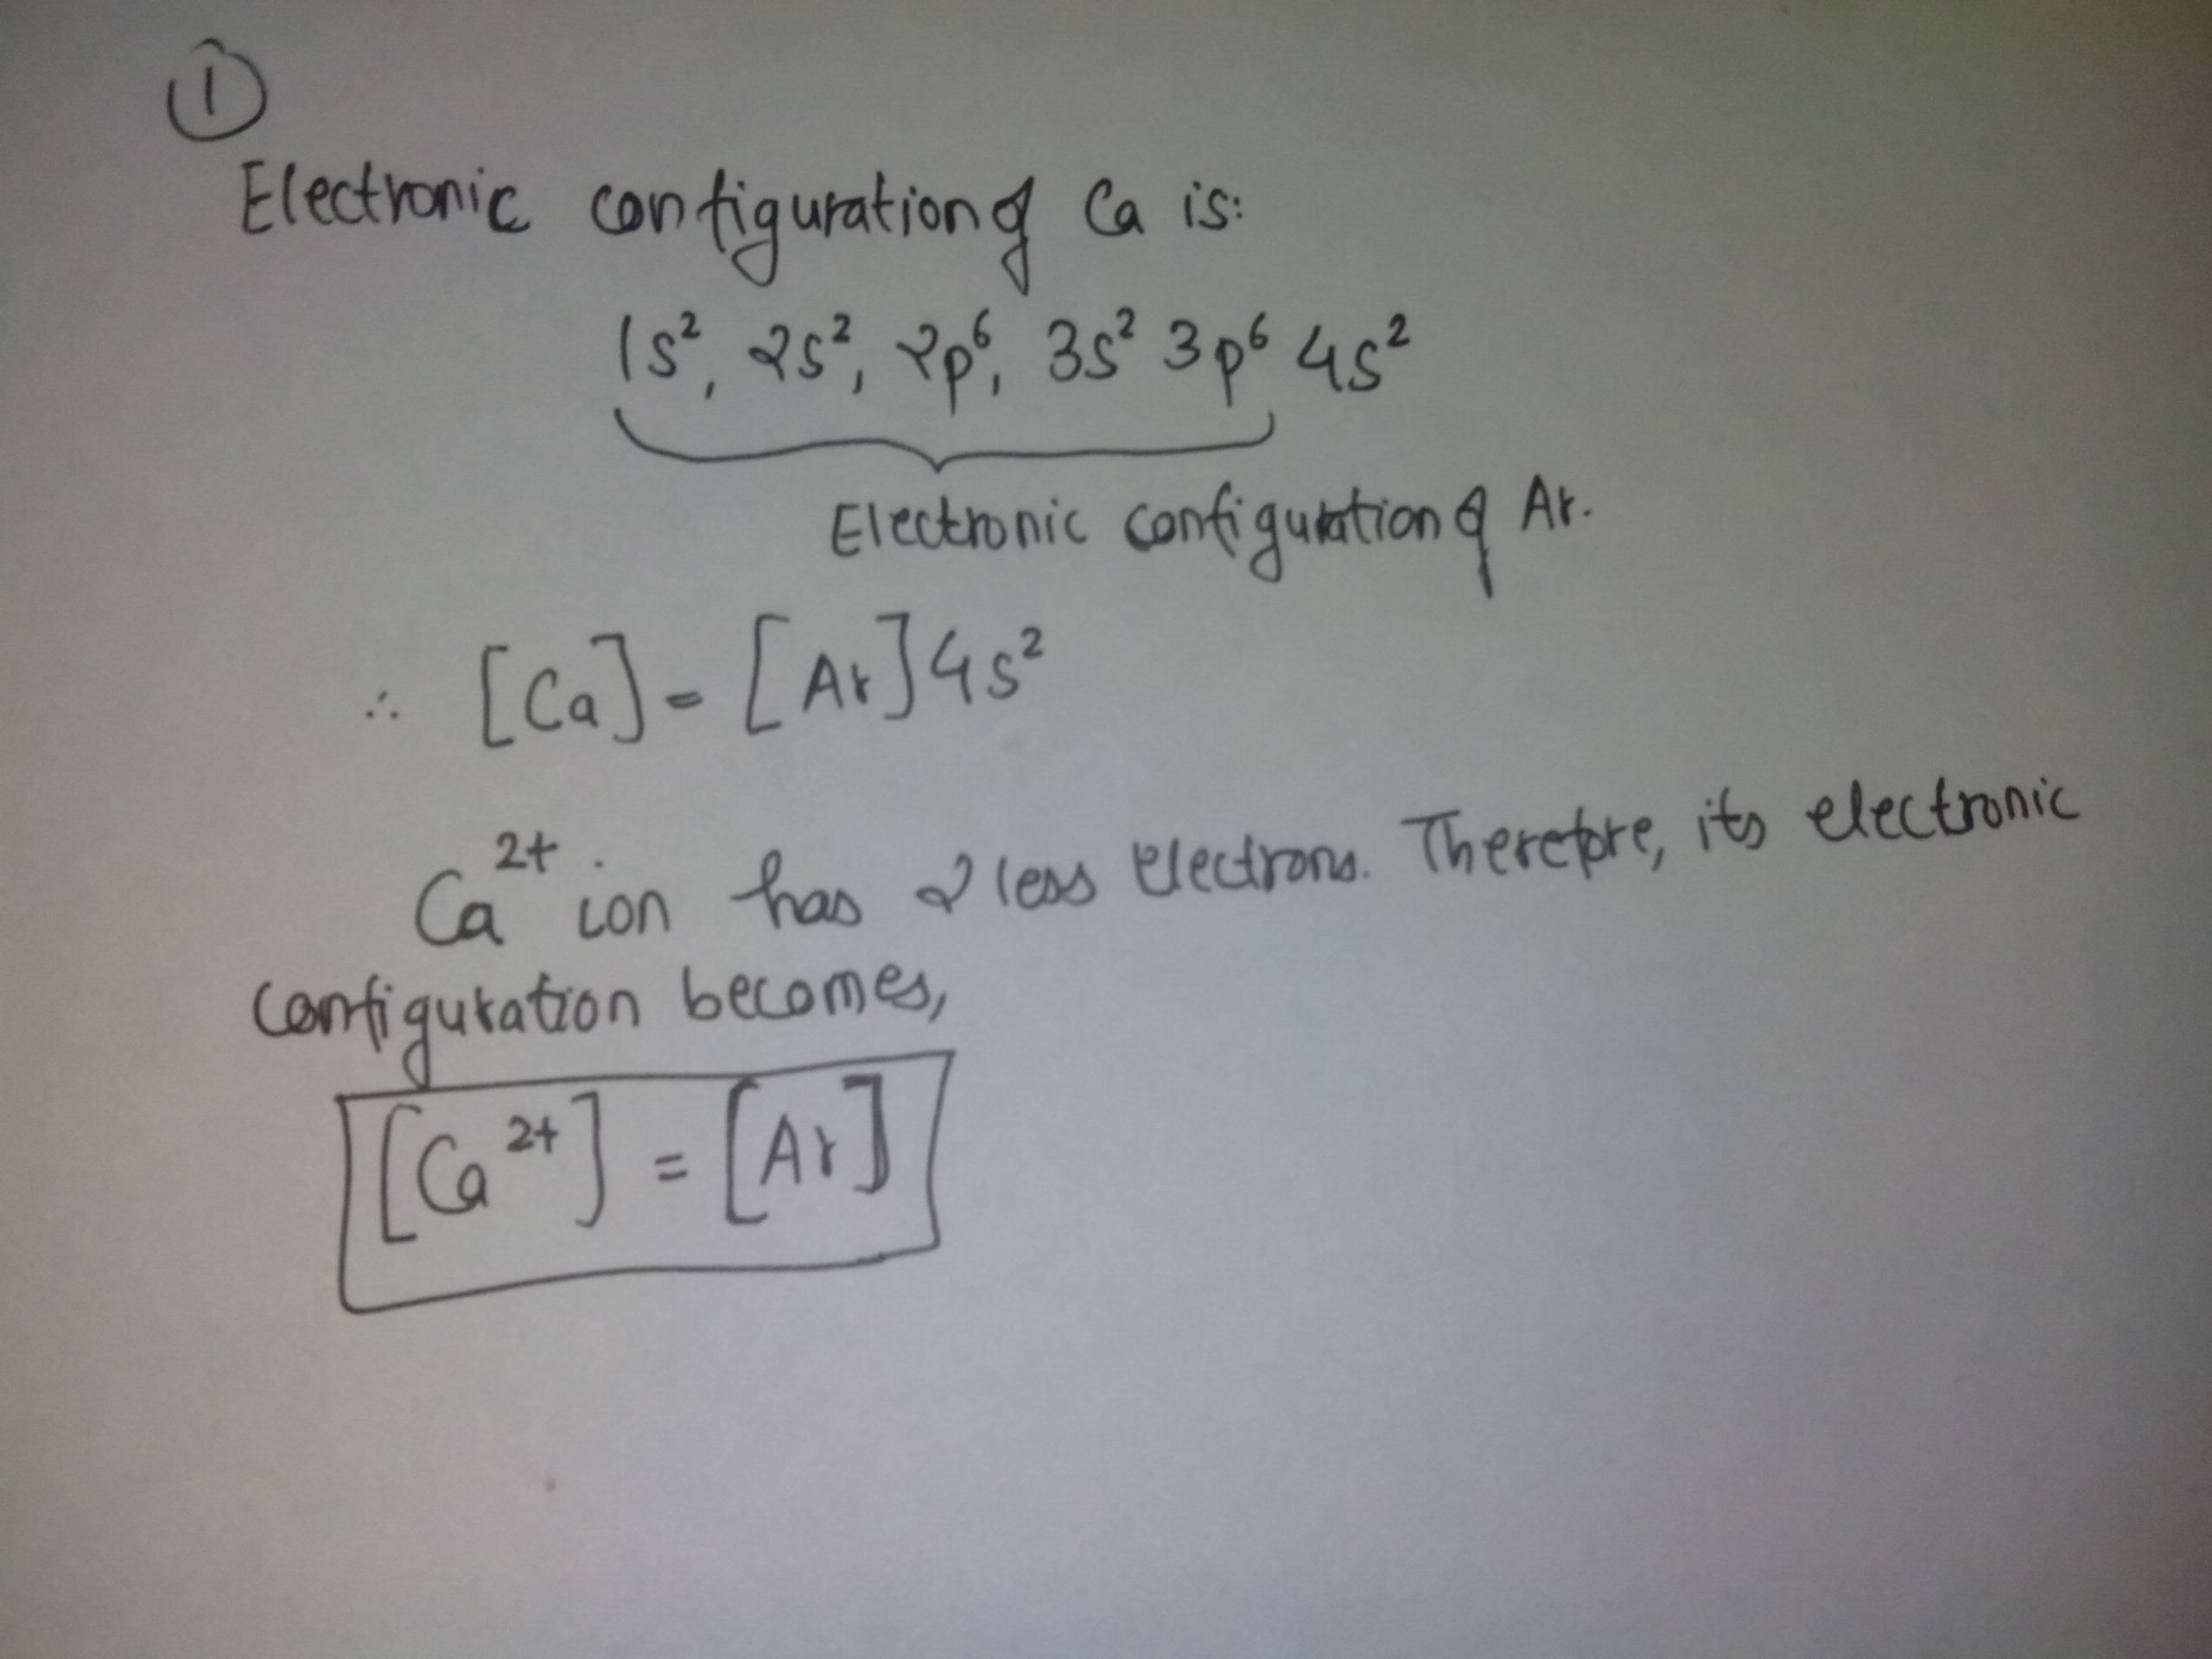 ①
Electronic configuration of Ca is:
1s², 2s², 2p⁶, 3s² 3p⁶ 4s²
Electronic configuration of Ar.
∴ [Ca] = [Ar] 4s²
Ca²⁺ ion has 2 less electrons. Therefore, its electronic
configuration becomes,
[Ca²⁺] = [Ar]